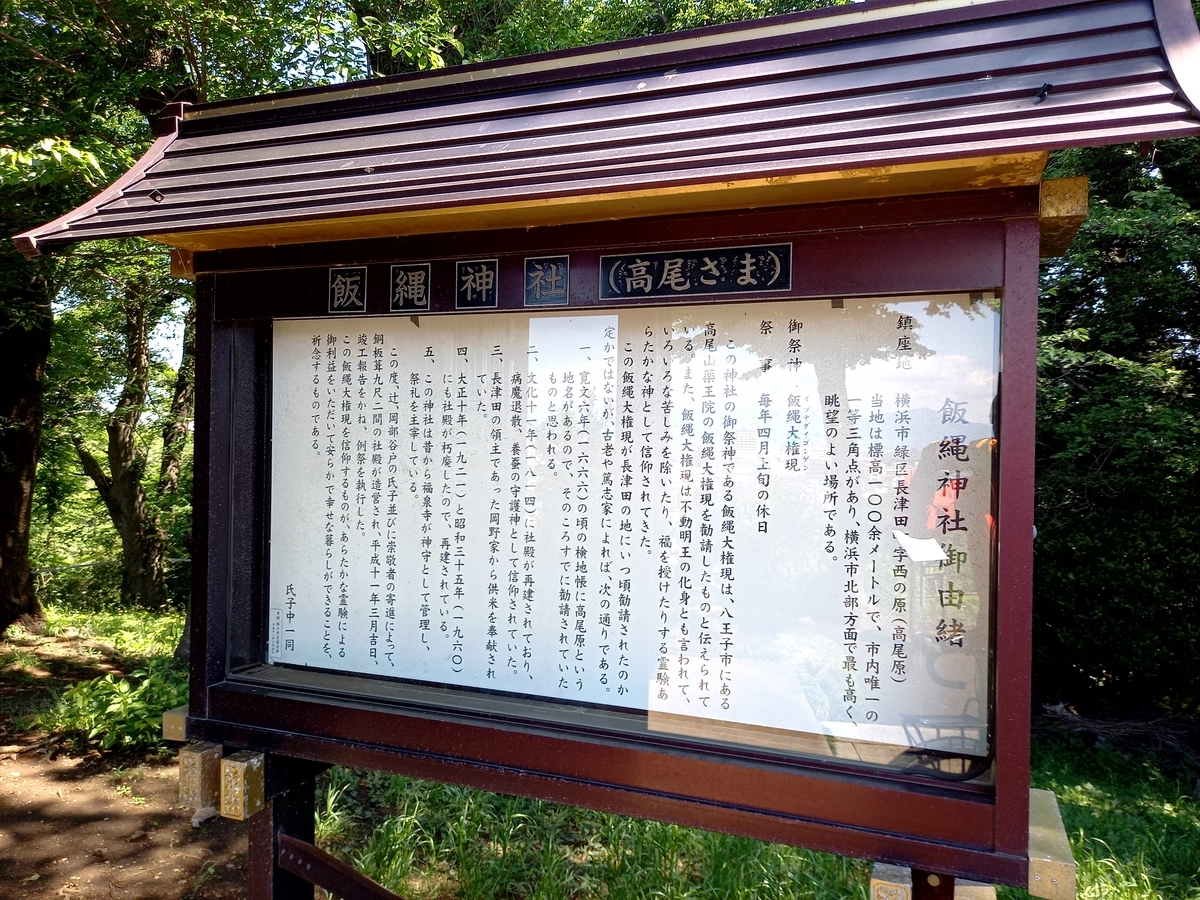 飯縄神社（高尾さま）
飯縄神社御由緒
鎮座地　横浜市緑区長津田　字西の原（高尾原）
当地は標高一〇〇余メートルで、市内唯一の
一等三角点があり、横浜市北部方面で最も高く、
眺望のよい場所である。
イイヅナダイゴンゲン
御祭神　飯縄大権現
祭　事　毎年四月上旬の休日
この神社の御祭神である飯縄大権現は、八王子市にある
高尾山薬王院の飯縄大権現を勧請したものと伝えられて
いる。また、飯縄大権現は不動明王の化身とも言われて、
いろいろな苦しみを除いたり、福を授けたりする霊験あ
らたかな神として信仰されてきた。
この飯縄大権現が長津田の地にいつ頃勧請されたのか
定かではないが、古老や篤志家によれば、次の通りである。
一、寛文六年（一六六六）の頃の検地帳に高尾原という
地名があるので、そのころすでに勧請されていた
ものと思われる。
二、文化十一年（一八一四）に社殿が再建されており、
病魔退散、養蚕の守護神として信仰されていた。
三、長津田の領主であった岡野家から供米を奉献され
ていた。
四、大正十年（一九二一）と昭和三十五年（一九六〇）
にも社殿が朽廃したので、再建されている。
五、この神社は昔から福泉寺が神守として管理し、
祭礼を主宰している。
この度、辻、岡部谷戸の氏子並びに崇敬者の寄進によって、
銅板葺九尺二間の社殿が造営され、平成十一年三月吉日、
竣工報告をかね、例祭を執行した。
この飯縄大権現を信仰するものが、あらたかな霊験による
御利益をいただいて安らかで幸せな暮らしができることを、
祈念するものである。
氏子中一同